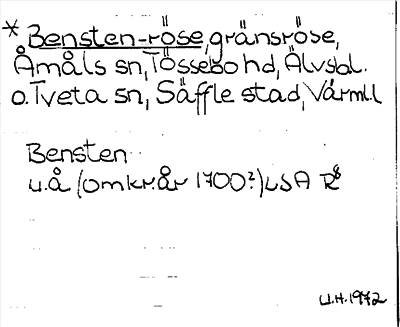 * Bensten-röse, gränsröse,
Åmåls sn, Tössebo hd, Älvsbl.
o. Tveta sn, Säffle stad, Värml.l
Bensten
u.å (omkr.år 1700?) LSA R⁸
U.H. 1972